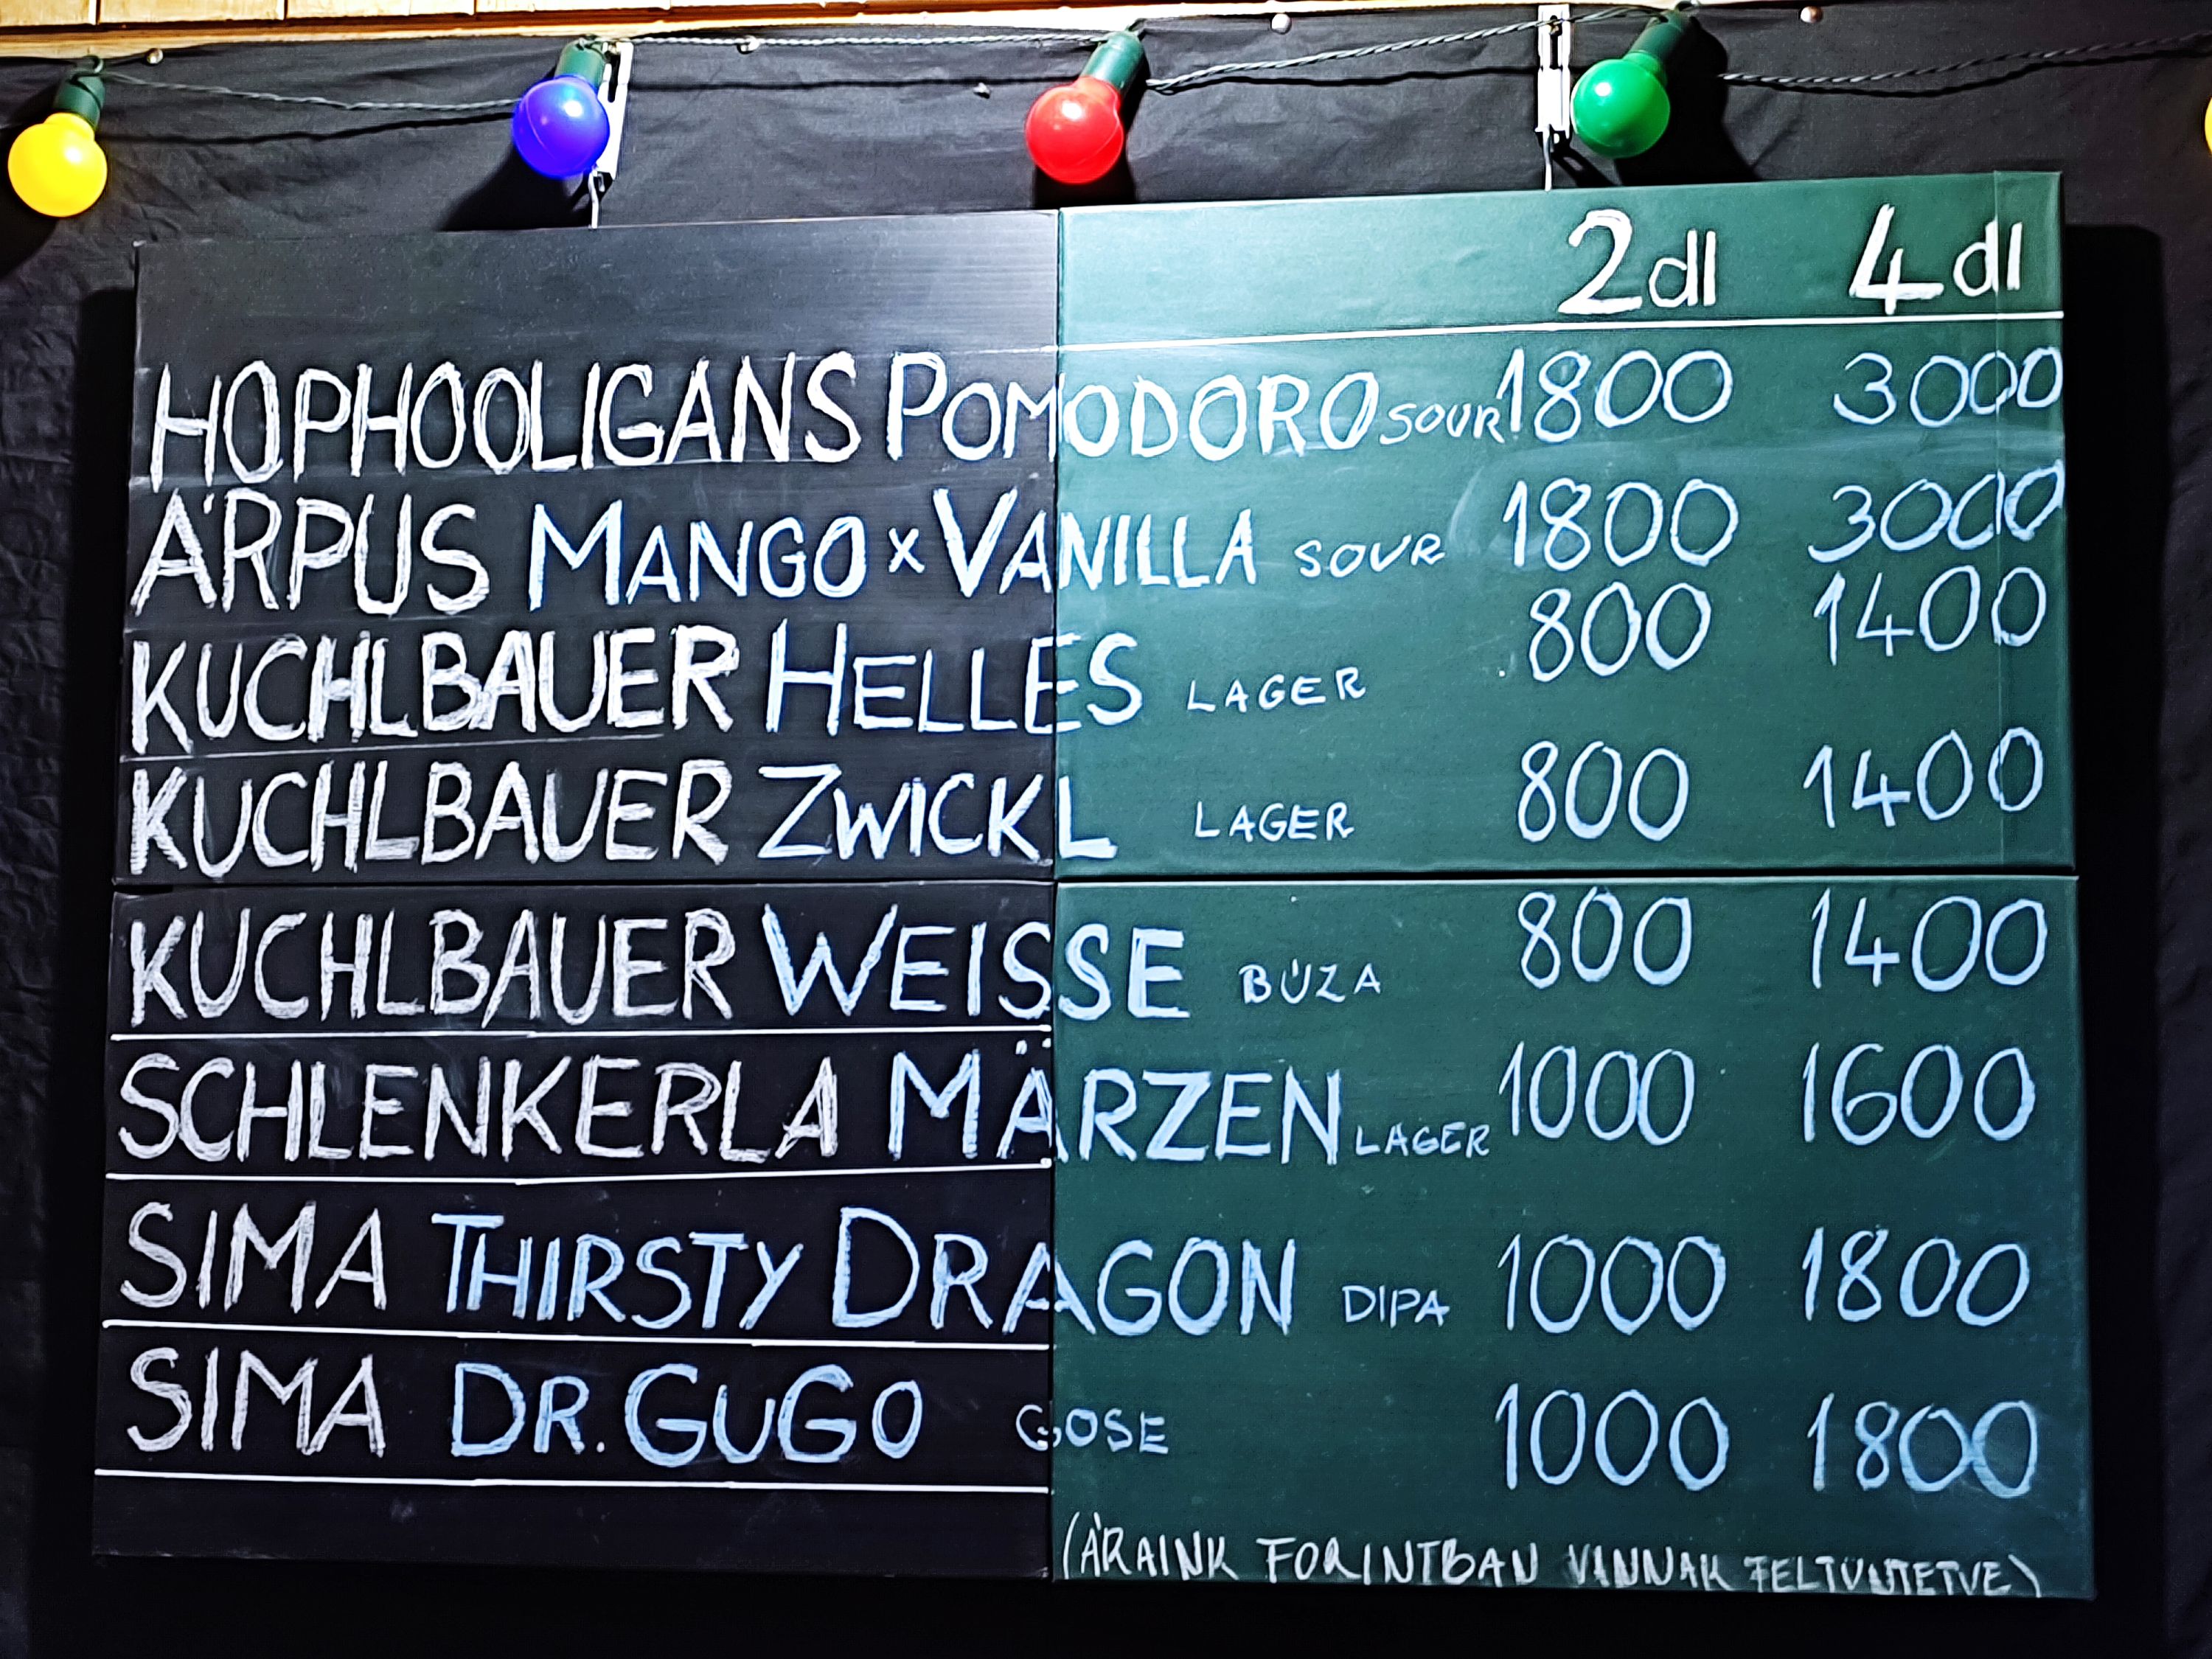 2dl 4dl
HOPHOOLIGANS POMODORO SOUR 1800 3000
ÁRPUS MANGO x VANILLA SOUR 1800 3000
KUCHLBAUER HELLES LAGER 800 1400
KUCHLBAUER ZWICKL LAGER 800 1400
KUCHLBAUER WEISSE BÚZA 800 1400
SCHLENKERLA MÄRZEN LAGER 1000 1600
SIMA THIRSTY DRAGON DIPA 1000 1800
SIMA DR. GUGO GOSE 1000 1800
(ÁRAINK FORINTBAN VANNAK FELTÜNTETVE)